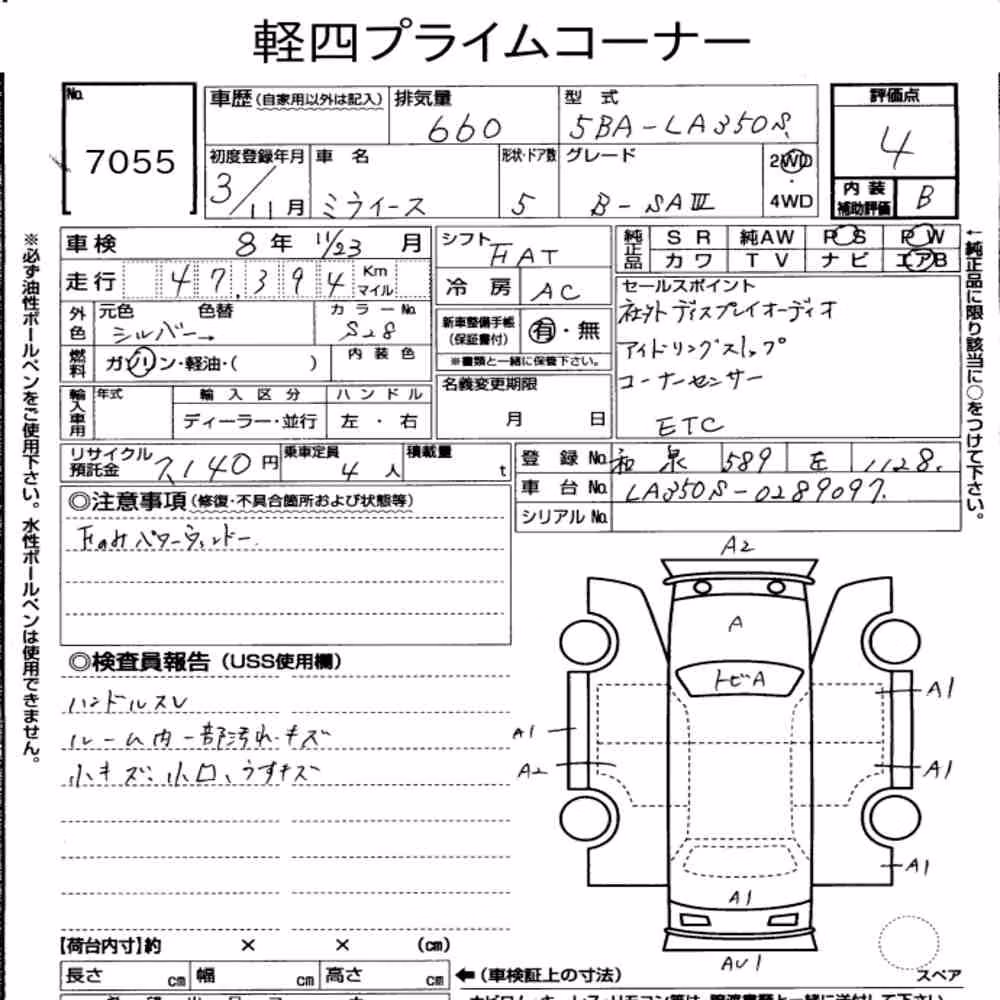 軽四プライムコーナー
No.
7055
車歴(自家用以外は記入)
排気量
660
型式
5BA-LA350S
評価点
4
内装
補助評価
B
初度登録年月
3/11月
車名
ミライース
形状・ドア数
5
グレード
B-SAⅢ
2WD
・
4WD
車検
8年 11/23 月
走行
47,394
Km
マイル
外色
元色
色替
シルバー→
カラーNo.
S28
燃料
ガソリン・軽油・( )
内装色
輸入車用
年式
輸入区分
ディーラー・並行
ハンドル
左・右
シフト
FAT
冷房
AC
新車整備手帳
(保証書付)
有・無
※書類と一緒に保管下さい。
名義変更期限
月 日
純正品
SR
純AW
PS
PW
カワ
TV
ナビ
エアB
セールスポイント
社外ディスプレイオーディオ
アイドリングストップ
コーナーセンサー
ETC
リサイクル
預託金
7,140円
乗車定員
4人
積載量
t
登録No.
和泉 589 を 1128
車台No.
LA350S-0289097
シリアルNo.
※必ず油性ボールペンをご使用下さい。水性ボールペンは使用できません。
←純正品に限り該当に○をつけて下さい。
◎注意事項(修復・不具合箇所および状態等)
パワーウィンドー
◎検査員報告(USS使用欄)
ハンドルスレ
ルーム内一部汚れ・キズ
小キズ、小凹、うすキズ
A2
A
トビA
A1
A1
A2
A1
A1
A1
AU1
スペア
【荷台内寸】約 × × (cm)
長さ cm
幅 cm
高さ cm
←(車検証上の寸法)